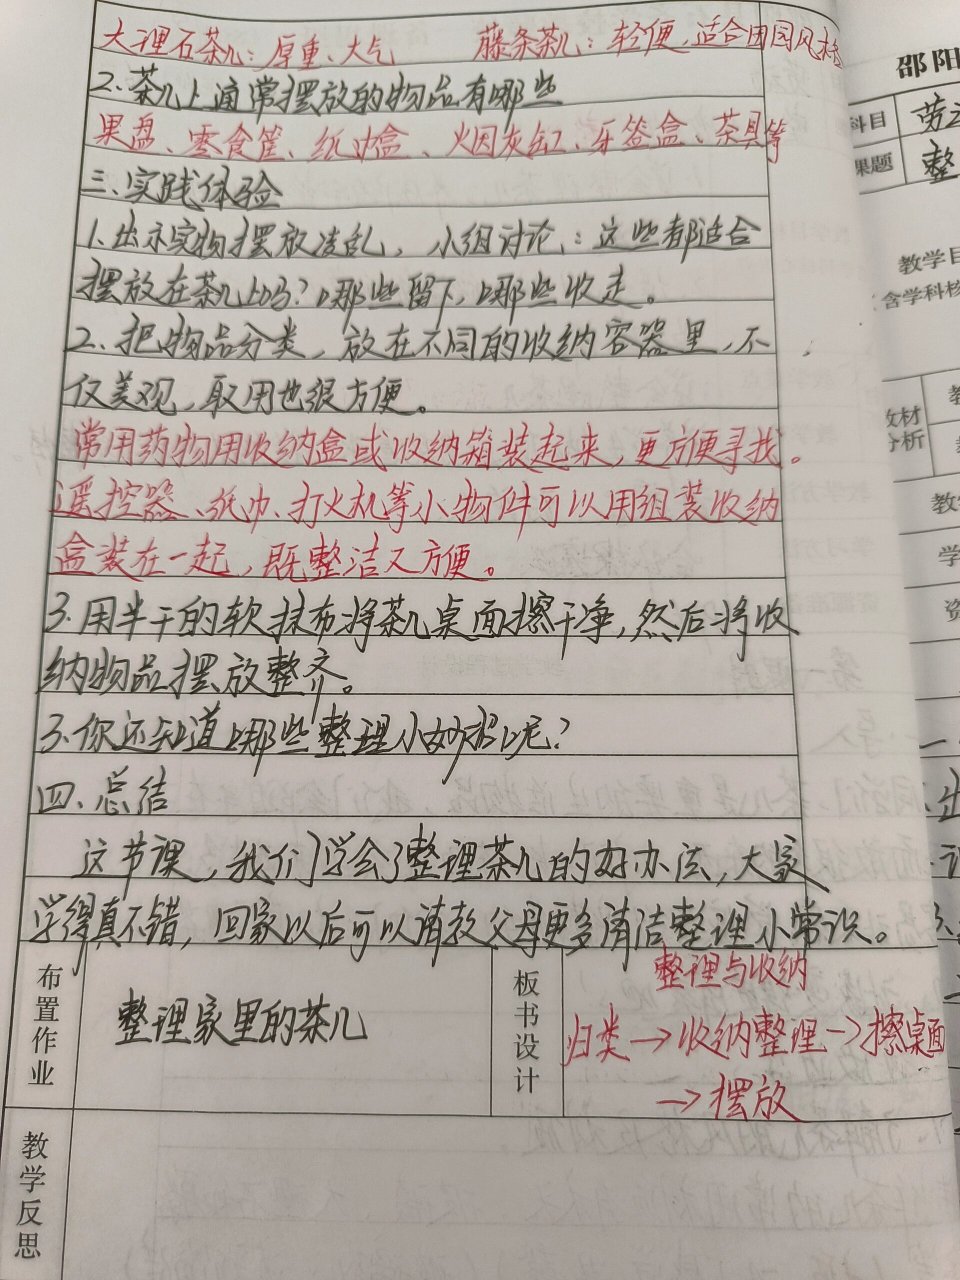 大理石茶几：厚重、大气 藤条茶几：轻便，适合田园风格
2、茶几上通常摆放的物品有哪些
果盘、零食筐、纸巾盒、烟灰缸、牙签盒、茶具等
三、实践体验
1、出示实物摆放凌乱，小组讨论：这些都适合
摆放在茶几上吗？哪些留下，哪些收走。
2、把物品分类，放在不同的收纳容器里，不
仅美观，取用也很方便。
常用药物用收纳盒或收纳箱装起来，更方便寻找。
遥控器、纸巾、打火机等小物件可以用组装收纳
盒装在一起，既整洁又方便。
3、用半干的软抹布将茶几桌面擦干净，然后将收
纳物品摆放整齐。
3、你还知道哪些整理小妙招呢？
四、总结
这节课，我们学会了整理茶几的好办法，大家
学得真不错，回家以后可以请教父母更多清洁整理小常识。
布置作业
整理家里的茶几
板书设计
整理与收纳
归类→收纳整理→擦桌面
→摆放
教学反思
邵阳
科目
劳
课题
整
教学目
含学科核
教材
分析
教
学
资